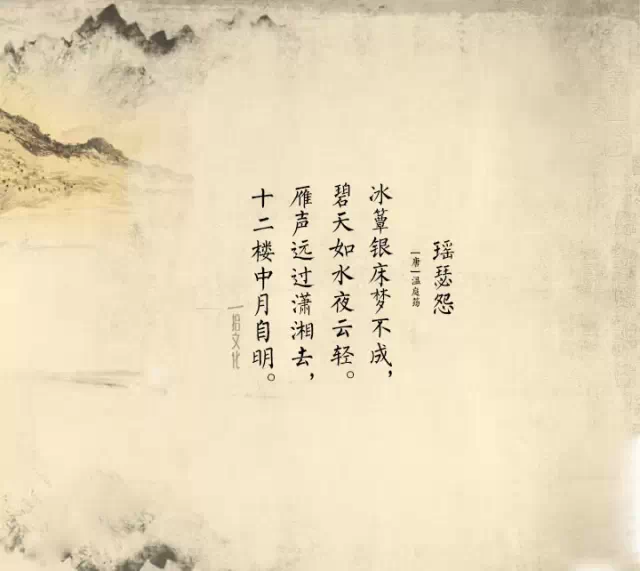 瑶瑟怨
[唐]温庭筠
冰簟银床梦不成，
碧天如水夜云轻。
雁声远过潇湘去，
十二楼中月自明。
一拾文化